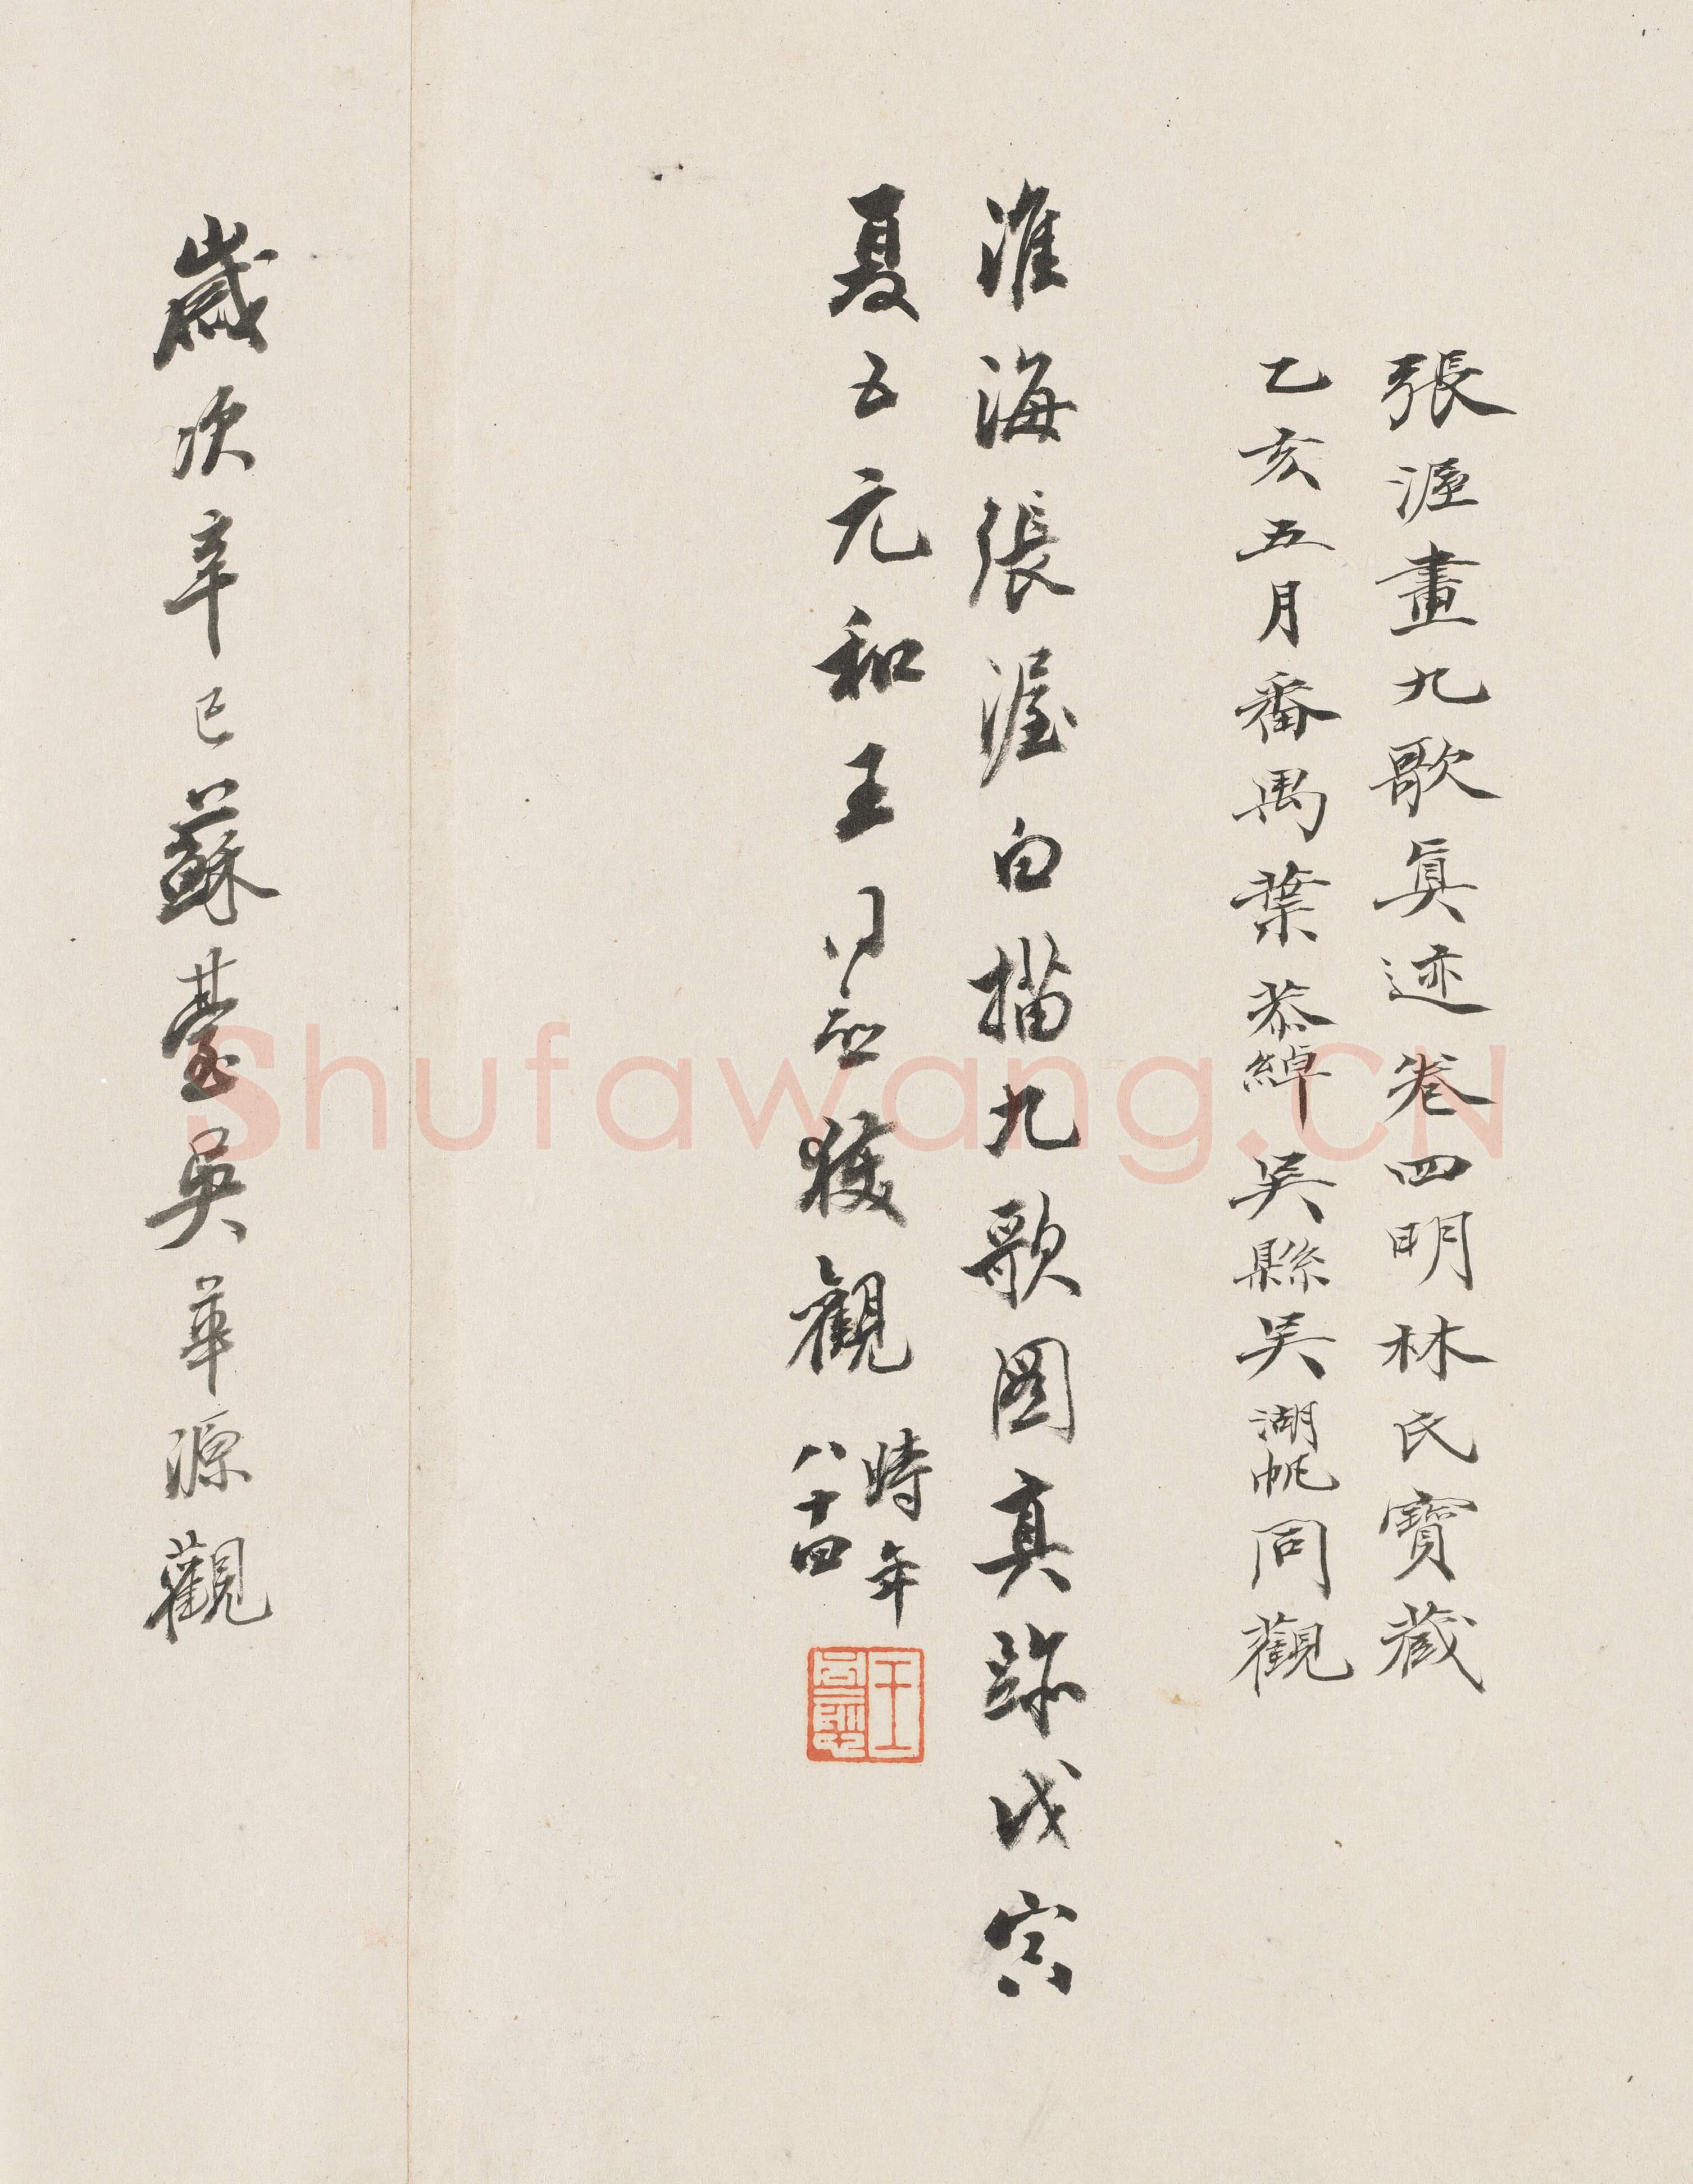 張渥畫九歌眞迹卷四明林氏寶藏
乙亥五月番禺葉恭綽吳縣吳湖帆同觀
淮海張渥白描九歌圖真跡戊寅
夏五元和王同愈獲觀時年
八十四
歲次辛巳蘇臺吳華源觀
Shufawang.CN